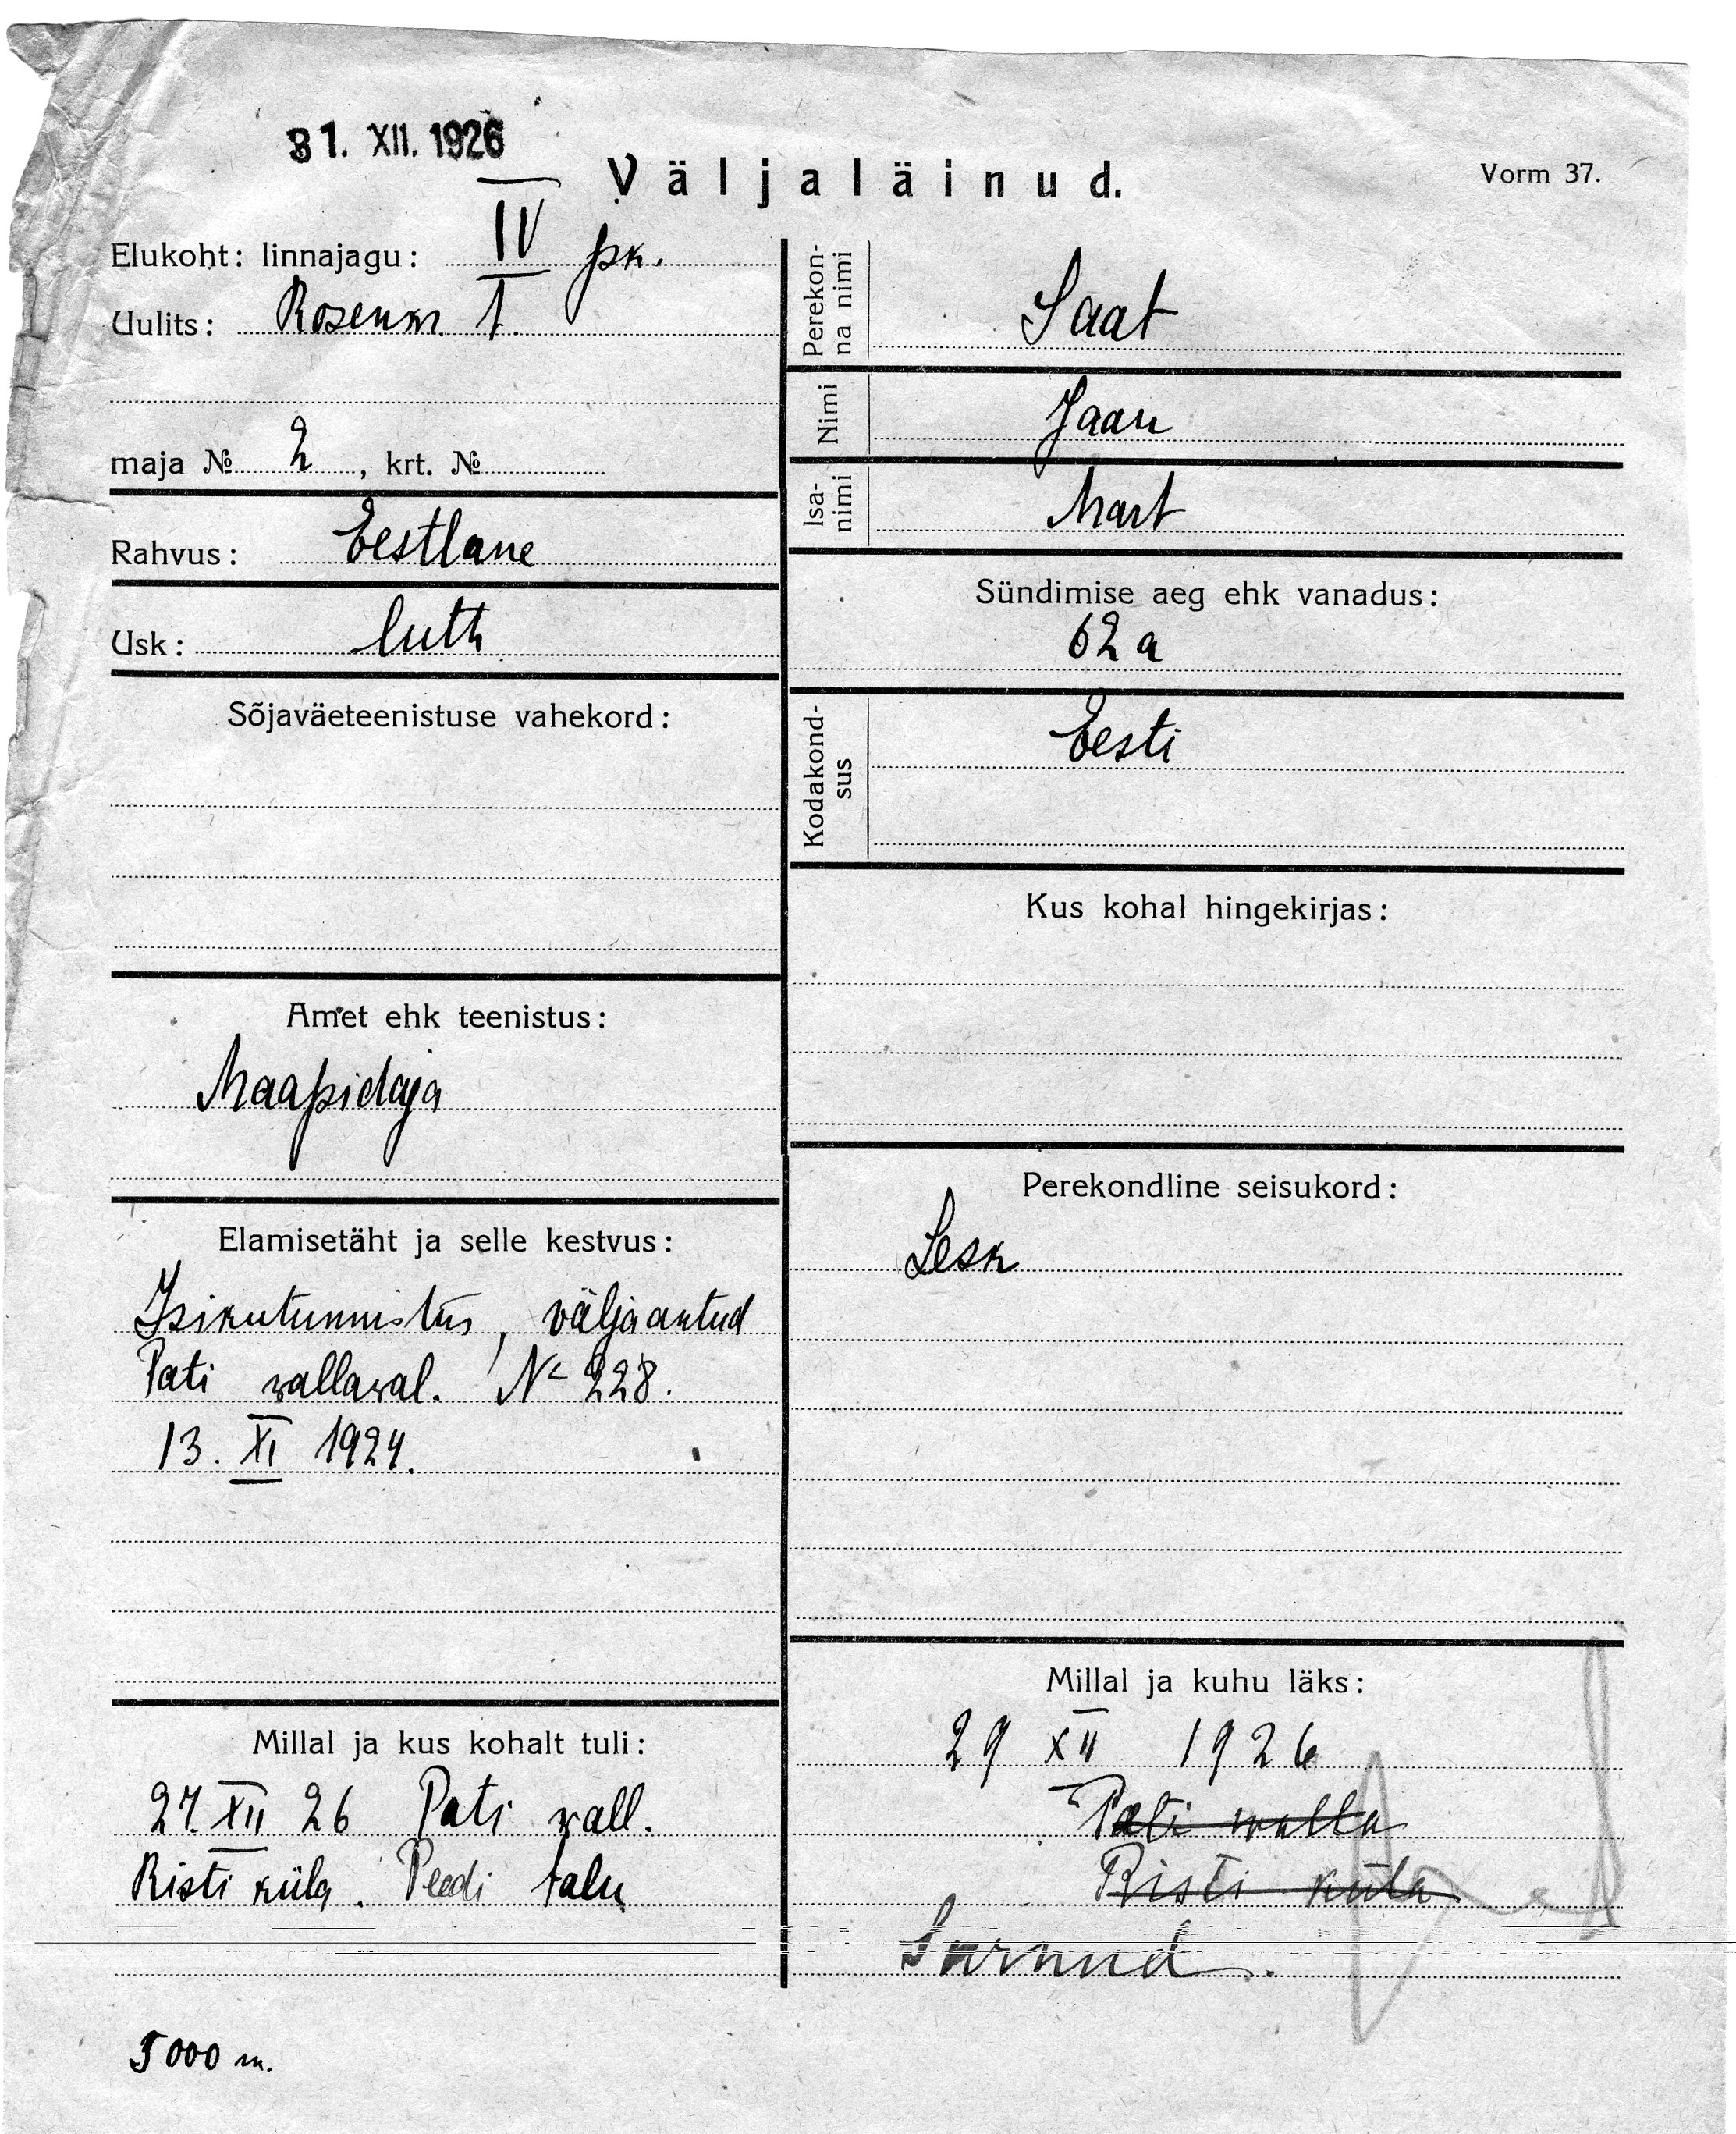 31. XII. 1926
Väljaläinud.
Vorm 37.
Elukoht: linnajagu: IV jsk.
Uulits: Rosenm 1.
maja № 2, krt. №
Rahvus: Eestlane
Usk: luth
Sõjaväeteenistuse vahekord:
Amet ehk teenistus:
Maapidaja
Elamisetäht ja selle kestvus:
Isikutunnistus, väljaantud
Pati vallaval. № 228.
13. XI 1924.
Millal ja kus kohalt tuli:
27. XII 26 Pati vall.
Risti küla. Peedi talu
5000 m.
Perekon-
na nimi
Saat
Nimi Jaan
Isa-
nimi
Mart
Sündimise aeg ehk vanadus:
62 a
Kodakond-
sus
Eesti
Kus kohal hingekirjas:
Perekondline seisukord:
Lesk
Millal ja kuhu läks:
29 XII 1926
Pati valla
Risti küla
Surnud.